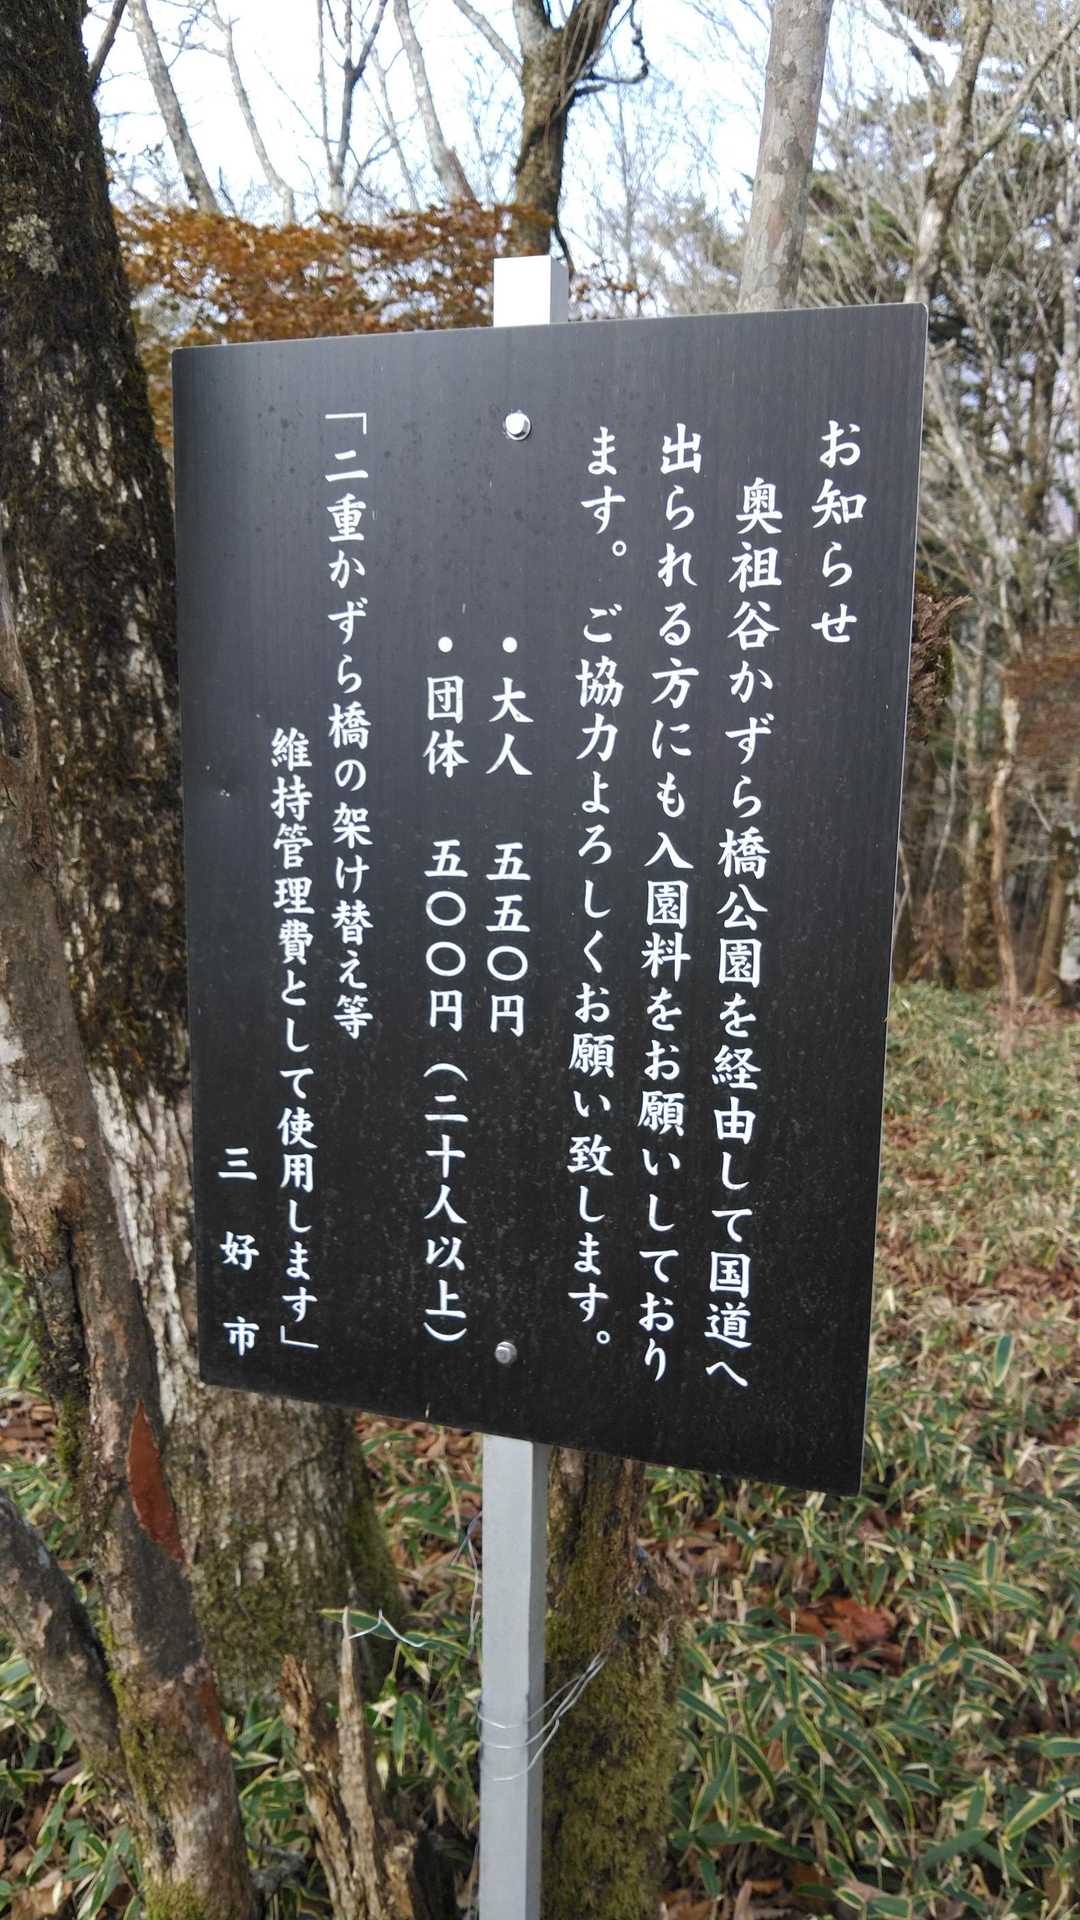 お知らせ
奥祖谷かずら橋公園を経由して国道へ
出られる方にも入園料をお願いしており
ます。ご協力よろしくお願い致します。
・大人 五五〇円
・団体 五〇〇円(二十人以上)
「二重かずら橋の架け替え等
維持管理費として使用します」
三好市